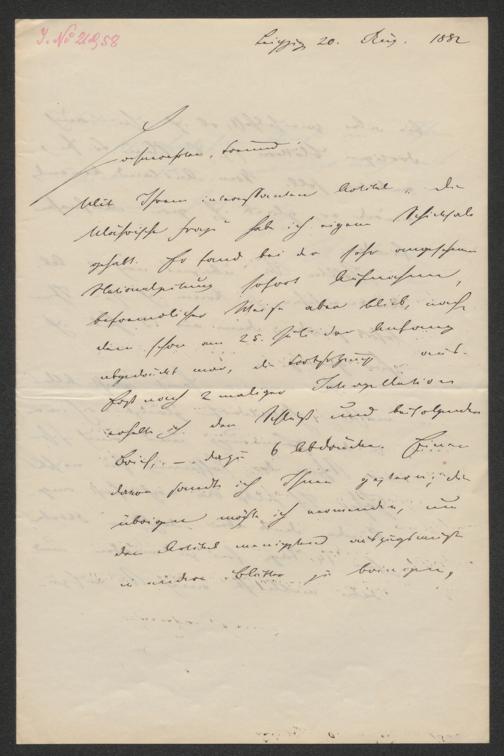 J. No 21958
Leipzig 20. Aug. 1882
Hochverehrter Freund!
Mit Ihrem interessanten Artikel "die
Mährische Frage" habe ich eigene Schicksale
gehabt. Er fand bei der sehr angesehenen
Nationalzeitung sofort Aufnahme,
befremdlicher Weise aber blieb, nach-
dem schon am 25. Juli der Anfang
abgedruckt war, die Fortsetzung aus.
Erst nach 2maliger Interpellation
erhalte ich den Schluß und beifolgenden
Brief, – dazu 6 Abdrücke. Einen
davon sandte ich Ihnen gestern; die
übrigen möchte ich verwenden, um
den Artikel wenigstens auszugsweise
in andere Blätter zu bringen,